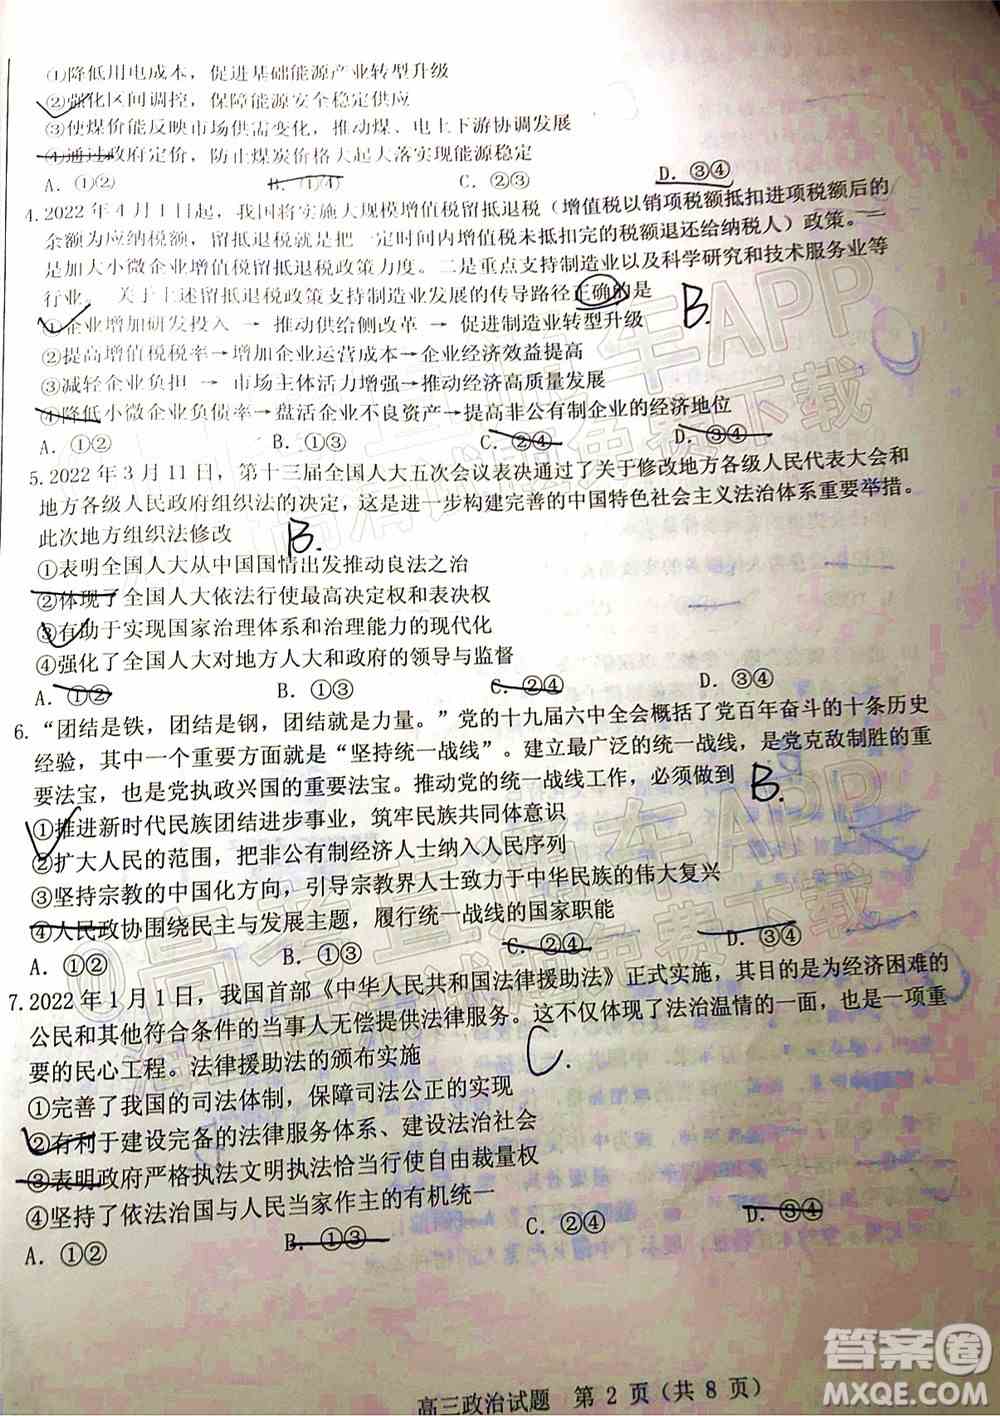 ①降低用电成本，促进基础能源产业转型升级
②强化区间调控，保障能源安全稳定供应
③使煤价能反映市场供需变化，推动煤、电上下游协调发展
④通过政府定价，防止煤炭价格大起大落实现能源稳定
A．①② B．①④ C．②③ D．③④
4.2022年4月1日起，我国将实施大规模增值税留抵退税（增值税以销项税额抵扣进项税额后的
余额为应纳税额，留抵退税就是对现在还不能抵扣、留着将来才能抵扣的
是加大小微企业增值税留抵退税政策力度。二是重点支持制造业以及科学研究和技术服务业等
行业。 关于上述留抵退税政策支持制造业发展的传导路径正确的是
B.
①企业增加研发投入 → 推动供给侧改革 → 促进制造业转型升级
②提高增值税税率→企业运营成本→企业经济效益提高
③减轻企业负担 → 市场主体活力增强→推动经济高质量发展
④降低小微企业负债率→盘活企业不良资产→提高非公有制企业的经济地位
A．①② B．①③ C．②④ D．③④
5.2022年3月11日，第十三届全国人大五次会议表决通过了关于修改地方各级人民代表大会和
地方各级人民政府组织法的决定，这是进一步构建完善的中国特色社会主义法治体系重要举措。
此次地方组织法修改
B.
①表明全国人大从中国国情出发推动良法之治
②体现了全国人大依法行使最高决定权和表决权
③有助于实现国家治理体系和治理能力的现代化
④强化了全国人大对地方人大和政府的领导与监督
A．①② B．①③ C．②④ D．③④
6.“团结是铁，团结是钢，团结就是力量。”党的十九届六中全会概括了党百年奋斗的十条历史
经验，其中一个重要方面就是“坚持统一战线”。建立最广泛的统一战线，是党克敌制胜的重
要法宝，也是党执政兴国的重要法宝。推动党的统一战线工作，必须做到
B.
①推进新时代民族团结进步事业，筑牢民族共同体意识
②扩大人民的范围，把非公有制经济人士纳入人民序列
③坚持宗教的中国化方向，引导宗教界人士致力于中华民族的伟大复兴
④人民政协围绕民主与发展主题，履行统一战线的国家职能
A．①② B．①③ C．②④ D．③④
7.2022年1月1日，我国首部《中华人民共和国法律援助法》正式实施，其目的是为经济困难的
公民和其他符合条件的当事人无偿提供法律服务。这不仅体现了法治温情的一面，也是一项重
要的民心工程。法律援助法的颁布实施
C.
①完善了我国的司法体制，保障司法公正的实现
②有利于建设完备的法律服务体系、建设法治社会
③表明政府严格执法文明执法恰当行使自由裁量权
④坚持了依法治国与人民当家作主的有机统一
A．①② B．①③ C．②④ D．③④
高三政治试题 第 2 页（共 8 页）
答案圈
MXQE.COM